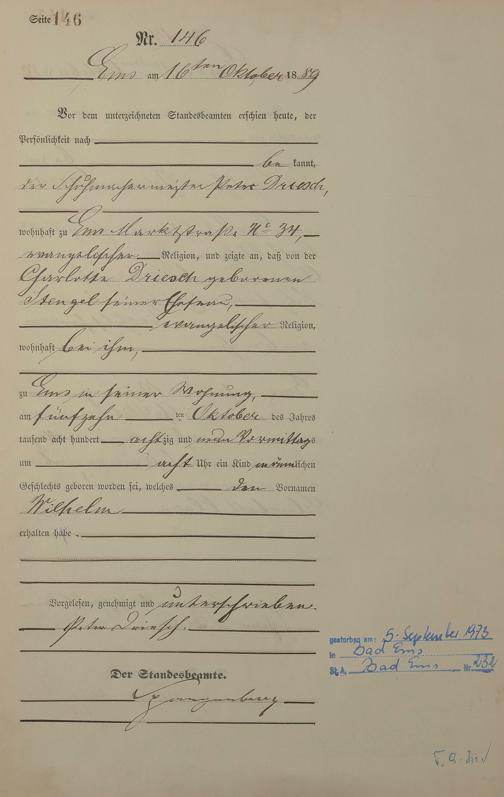 Seite 146
Nr. 146
Ems am 16ten Oktober 1889
Vor dem unterzeichneten Standesbeamten erschien heute, der
Persönlichkeit nach
be kannt,
der Schuhmachermeister Peter Driesch,
wohnhaft zu Ems Marktstraße No 34,
evangelischer Religion, und zeigte an, daß von der
Charlotte Driesch geborenen
Stengel seiner Ehefrau,
evangelischer Religion,
wohnhaft bei ihm,
zu Ems in seiner Wohnung,
am fünfzehn ten Oktober des Jahres
tausend acht hundert achtzig und neun Vormittags
um acht Uhr ein Kind männlichen
Geschlechts geboren worden sei, welches den Vornamen
Wilhelm
erhalten habe.
Vorgelesen, genehmigt und unterschrieben.
Peter Driesch.
Der Standesbeamte.
Spangenberg
gestorben am: 5. September 1973
in Bad Ems
St.A. Bad Ems Nr. 232